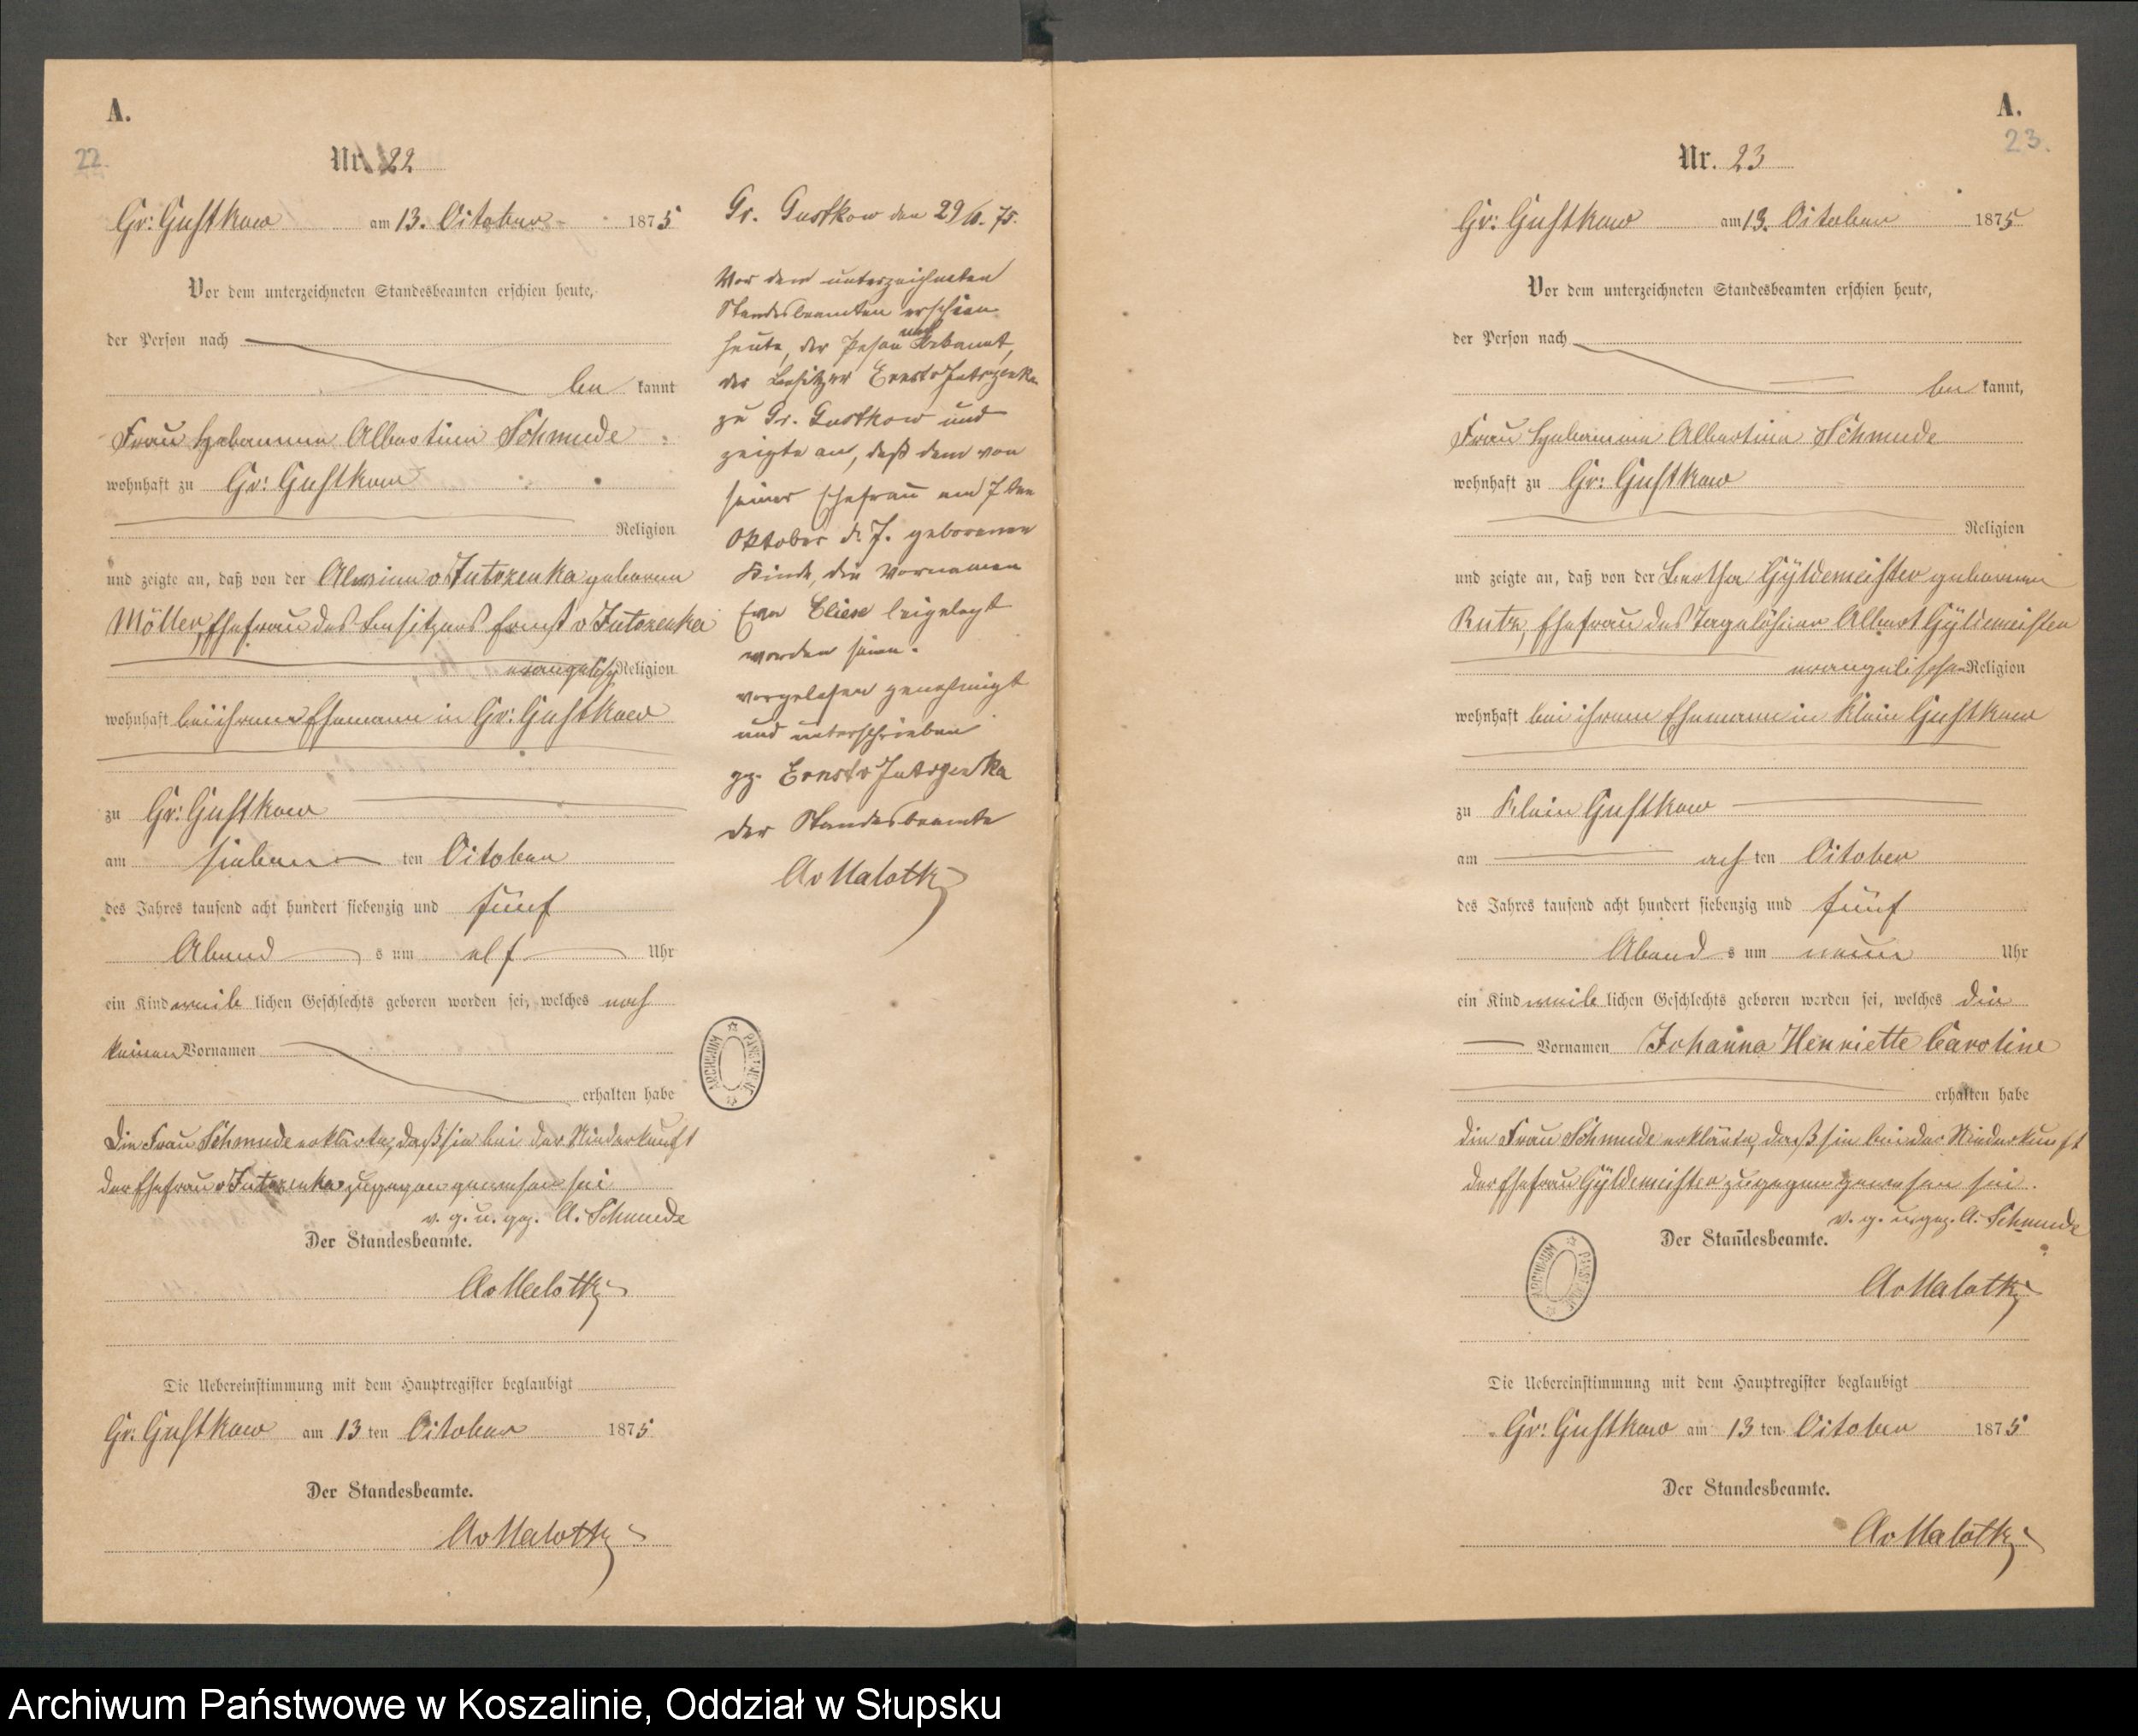 A.
22.
Nr. 22
Gr: Gustkow am 13. October 1875
Vor dem unterzeichneten Standesbeamten erschien heute,
der Person nach
be kannt
Frau Hebamme Albertine Schmude
wohnhaft zu Gr: Gustkow
Religion
und zeigte an, daß von der v Jutrzenka geborene
Möller, Ehefrau des Besitzers Ernst v Jutrzenka
evangelisch Religion
wohnhaft bei ihrem Ehemann in Gr: Gustkow
zu Gr: Gustkow
am sieben ten October
des Jahres tausend acht hundert siebenzig und fünf
Abend s um elf Uhr
ein Kind weib lichen Geschlechts geboren worden sei, welches noch
keinen Vornamen
erhalten habe
Die Frau Schmude erklärte, daß sie bei der Niederkunft
der Ehefrau v Jutrzenka zugegen gewesen sei
v. g. u. gez. A. Schmude
Der Standesbeamte.
Av Malottki
Die Uebereinstimmung mit dem Hauptregister beglaubigt
Gr: Gustkow am 13 ten October 1875
Der Standesbeamte.
Av Malottki
Gr. Gustkow den 75.
Vor dem unterzeichneten
Standesbeamten erschien
heute, der Person nach bekannt,
der Besitzer Ernst v Jutrzenka
zu Gr. Gustkow und
zeigte an, daß dem von
seiner Ehefrau am 7 ten
Oktober d. J. geborenen
Kinde, die Vornamen
Eliese beigelegt
worden seien.
vorgelesen genehmigt
und unterschrieben
gz. Ernst v Jutrzenka
der Standesbeamte
Av Malottki
ARCHIWUM PAŃSTWOWE
A.
23.
Nr. 23
Gr: Gustkow am 13. October 1875
Vor dem unterzeichneten Standesbeamten erschien heute,
der Person nach
be kannt,
Frau Hebamme Albertine Schmude
wohnhaft zu Gr: Gustkow
Religion
und zeigte an, daß von der Bertha Gyldemeister geborene
Rutz, Ehefrau des Tagelöhner Albert Gyldemeister
evangelischer Religion
wohnhaft bei ihrem Ehemann in Klein Gustkow
zu Klein Gustkow
am ach ten October
des Jahres tausend acht hundert siebenzig und fünf
Abend s um neun Uhr
ein Kind weib lichen Geschlechts geboren worden sei, welches die
Vornamen Johanna Henriette Caroline
erhalten habe
die Frau Schmude erklärte, daß sie bei der Niederkunft
der Ehefrau Gyldemeister zugegen gewesen sei.
v. g. u. gez. A. Schmude
Der Standesbeamte.
ARCHIWUM PAŃSTWOWE
Av Malottki
Die Uebereinstimmung mit dem Hauptregister beglaubigt
Gr: Gustkow am 13 ten October 1875
Der Standesbeamte.
Av Malottki
Archiwum Państwowe w Koszalinie, Oddział w Słupsku